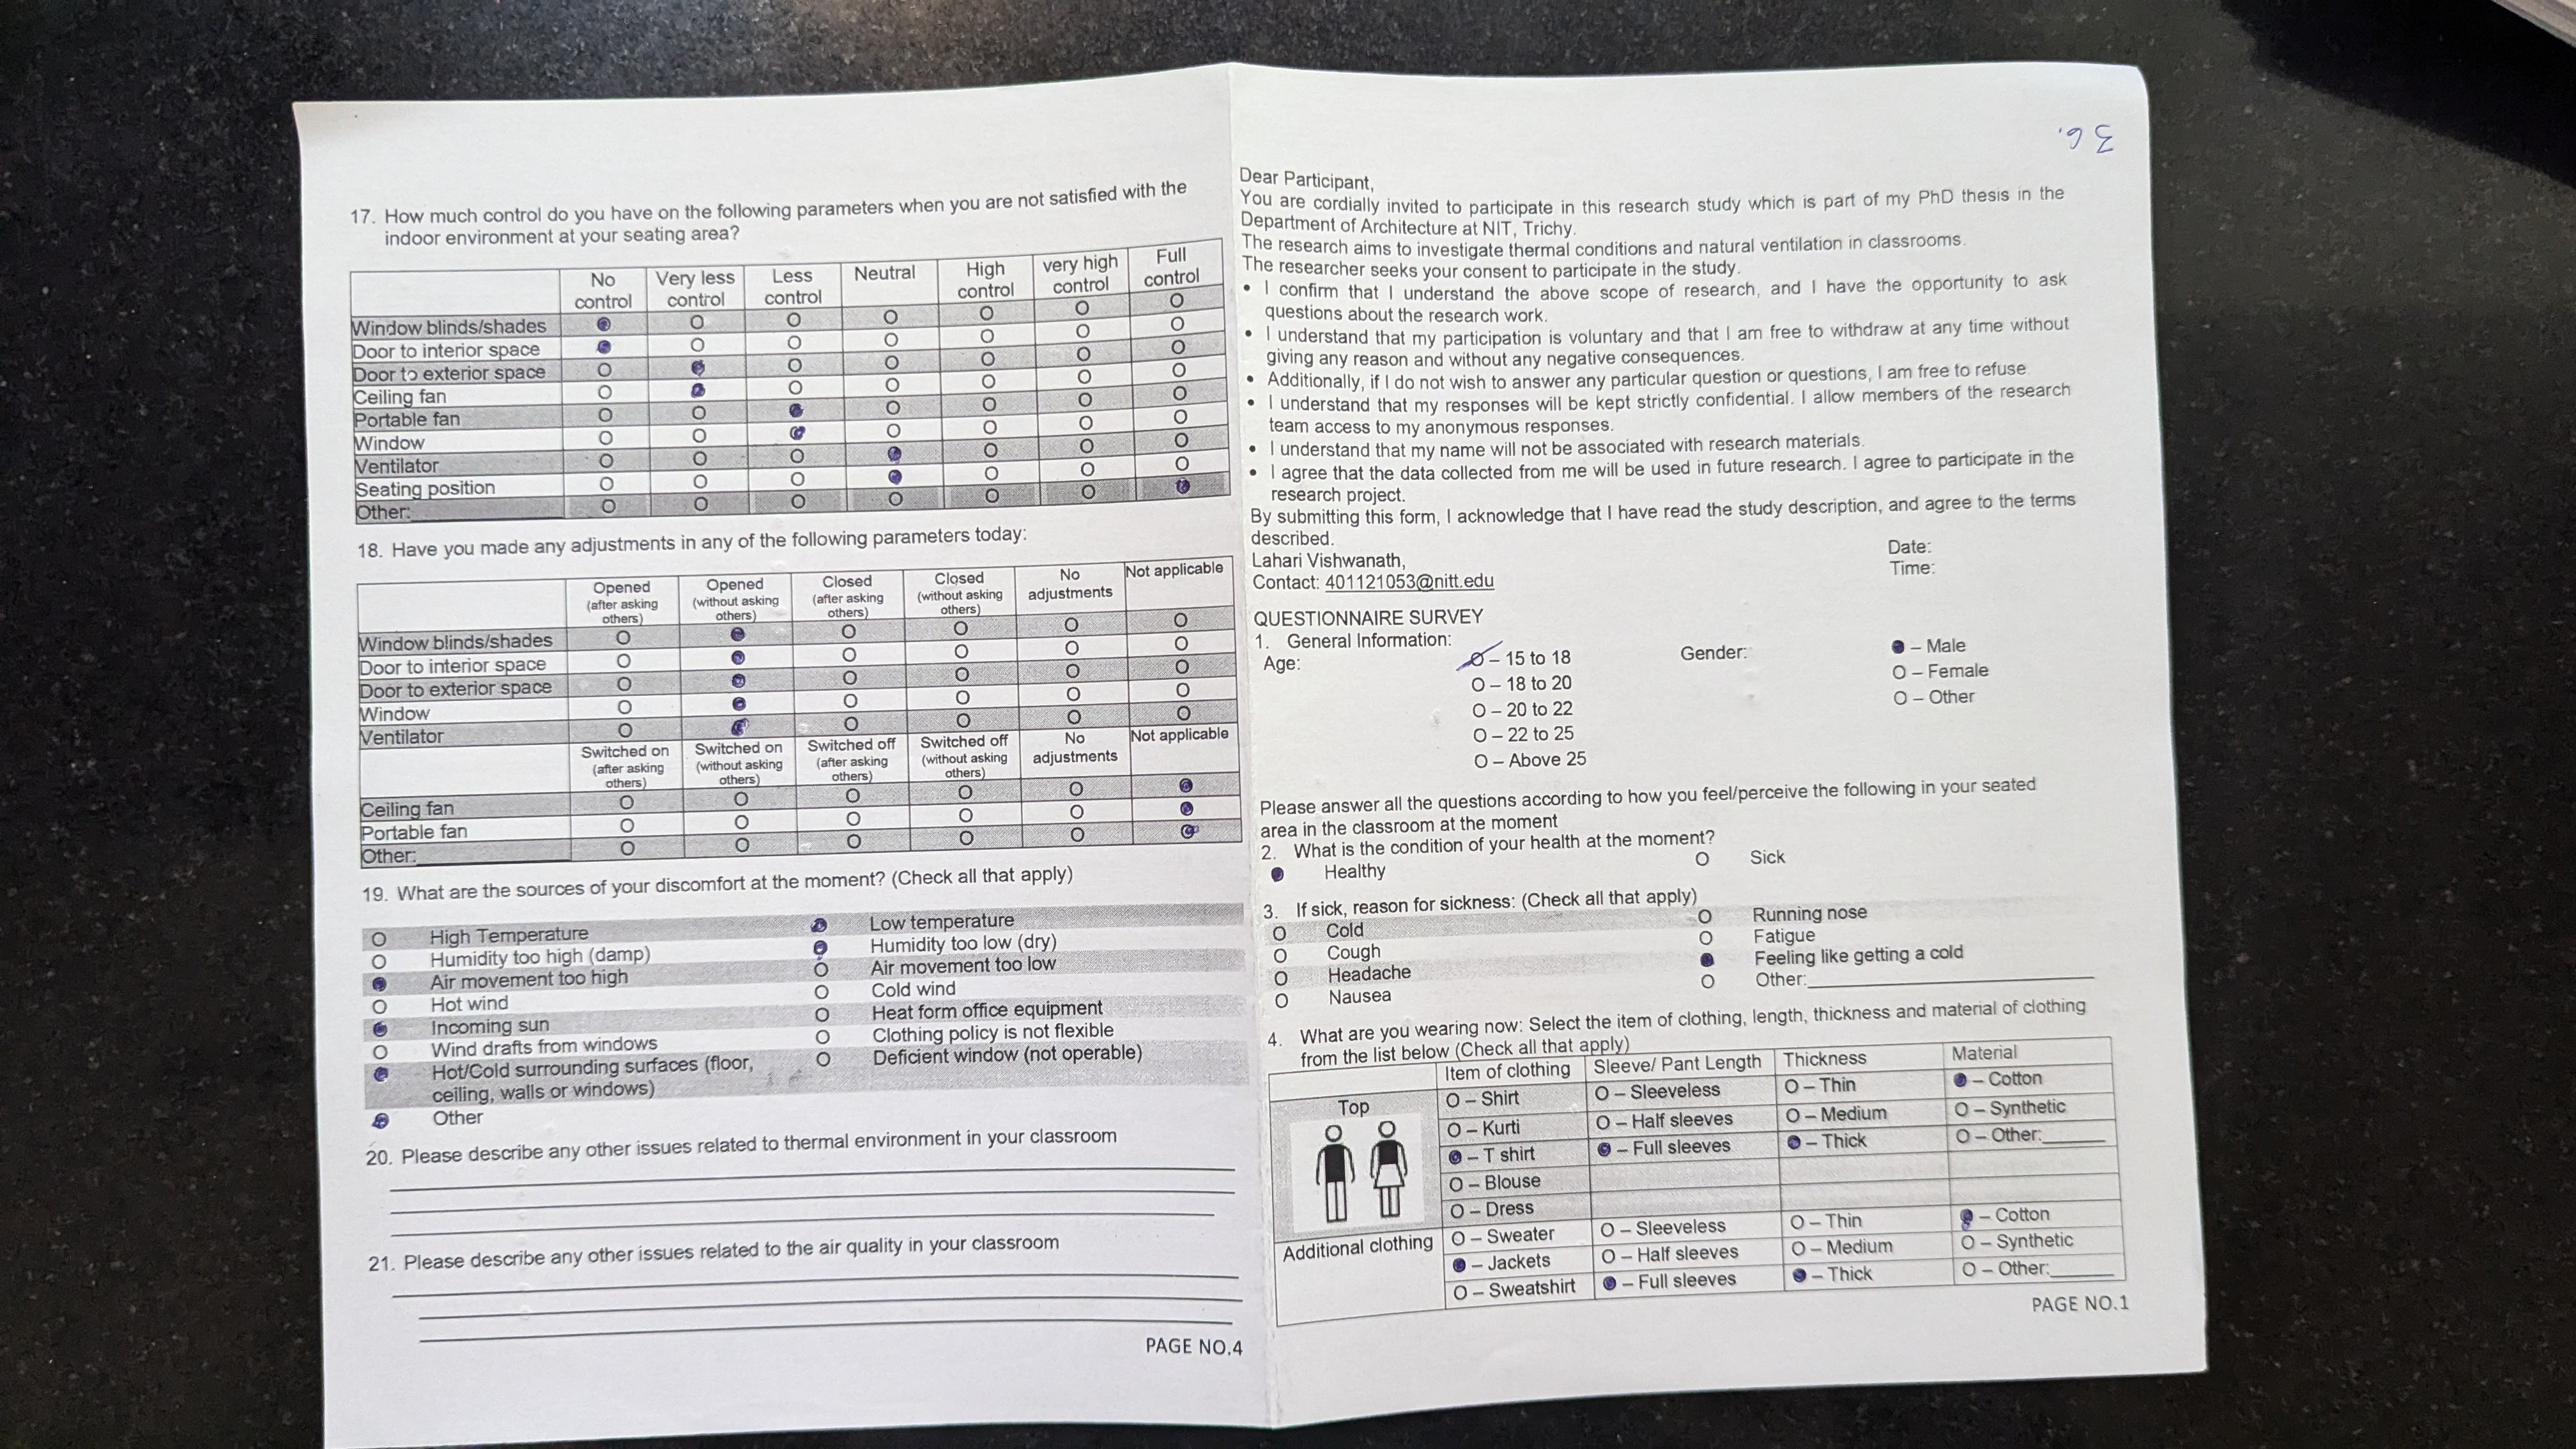 17. How much control do you have on the following parameters when you are not satisfied with the
indoor environment at your seating area?
No control Very less control Less control Neutral High control very high control Full control
Window blinds/shades
Door to interior space
Door to exterior space
Ceiling fan
Portable fan
Window
Ventilator
Seating position
Other:
18. Have you made any adjustments in any of the following parameters today:
Opened (after asking others) Opened (without asking others) Closed (after asking others) Closed (without asking others) No adjustments Not applicable
Window blinds/shades
Door to interior space
Door to exterior space
Window
Ventilator
Switched on (after asking others) Switched on (without asking others) Switched off (after asking others) Switched off (without asking others) No adjustments Not applicable
Ceiling fan
Portable fan
Other:
19. What are the sources of your discomfort at the moment? (Check all that apply)
High Temperature Low temperature
Humidity too high (damp) Humidity too low (dry)
Air movement too high Air movement too low
Hot wind Cold wind
Incoming sun Heat form office equipment
Wind drafts from windows Clothing policy is not flexible
Hot/Cold surrounding surfaces (floor, Deficient window (not operable)
ceiling, walls or windows)
Other
20. Please describe any other issues related to thermal environment in your classroom
21. Please describe any other issues related to the air quality in your classroom
PAGE NO.4
36.
Dear Participant,
You are cordially invited to participate in this research study which is part of my PhD thesis in the
Department of Architecture at NIT, Trichy.
The research aims to investigate thermal conditions and natural ventilation in classrooms.
The researcher seeks your consent to participate in the study.
• I confirm that I understand the above scope of research, and I have the opportunity to ask
questions about the research work.
• I understand that my participation is voluntary and that I am free to withdraw at any time without
giving any reason and without any negative consequences.
• Additionally, if I do not wish to answer any particular question or questions, I am free to refuse.
• I understand that my responses will be kept strictly confidential. I allow members of the research
team access to my anonymous responses.
• I understand that my name will not be associated with research materials.
• I agree that the data collected from me will be used in future research. I agree to participate in the
research project.
By submitting this form, I acknowledge that I have read the study description, and agree to the terms
described.
Lahari Vishwanath, Date:
Contact: 401121053@nitt.edu Time:
QUESTIONNAIRE SURVEY
1. General Information:
Age: O – 15 to 18 Gender: – Male
O – 18 to 20 O – Female
O – 20 to 22 O – Other
O – 22 to 25
O – Above 25
Please answer all the questions according to how you feel/perceive the following in your seated
area in the classroom at the moment
2. What is the condition of your health at the moment?
Healthy O Sick
3. If sick, reason for sickness: (Check all that apply)
O Cold O Running nose
O Cough O Fatigue
O Headache Feeling like getting a cold
O Nausea O Other:
4. What are you wearing now: Select the item of clothing, length, thickness and material of clothing
from the list below (Check all that apply)
Item of clothing Sleeve/ Pant Length Thickness Material
Top O – Shirt O – Sleeveless O – Thin – Cotton
O – Kurti O – Half sleeves O – Medium O – Synthetic
– T shirt – Full sleeves – Thick O – Other:
O – Blouse
O – Dress
Additional clothing O – Sweater O – Sleeveless O – Thin – Cotton
– Jackets O – Half sleeves O – Medium O – Synthetic
O – Sweatshirt – Full sleeves – Thick O – Other:
PAGE NO.1